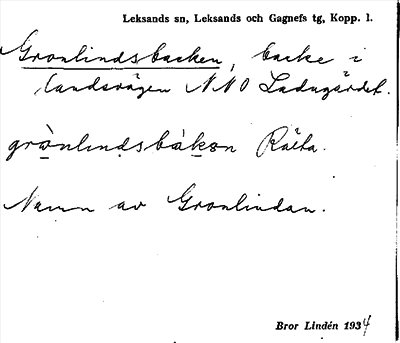 Leksands sn, Leksands och Gagnefs tg, Kopp. l.
Gronlindsbacken, backe i
landsvägen NNO Ladugårdet.
grònlindsbàkən Rälta.
Namn av Gronlindan.
Bror Lindén 1934